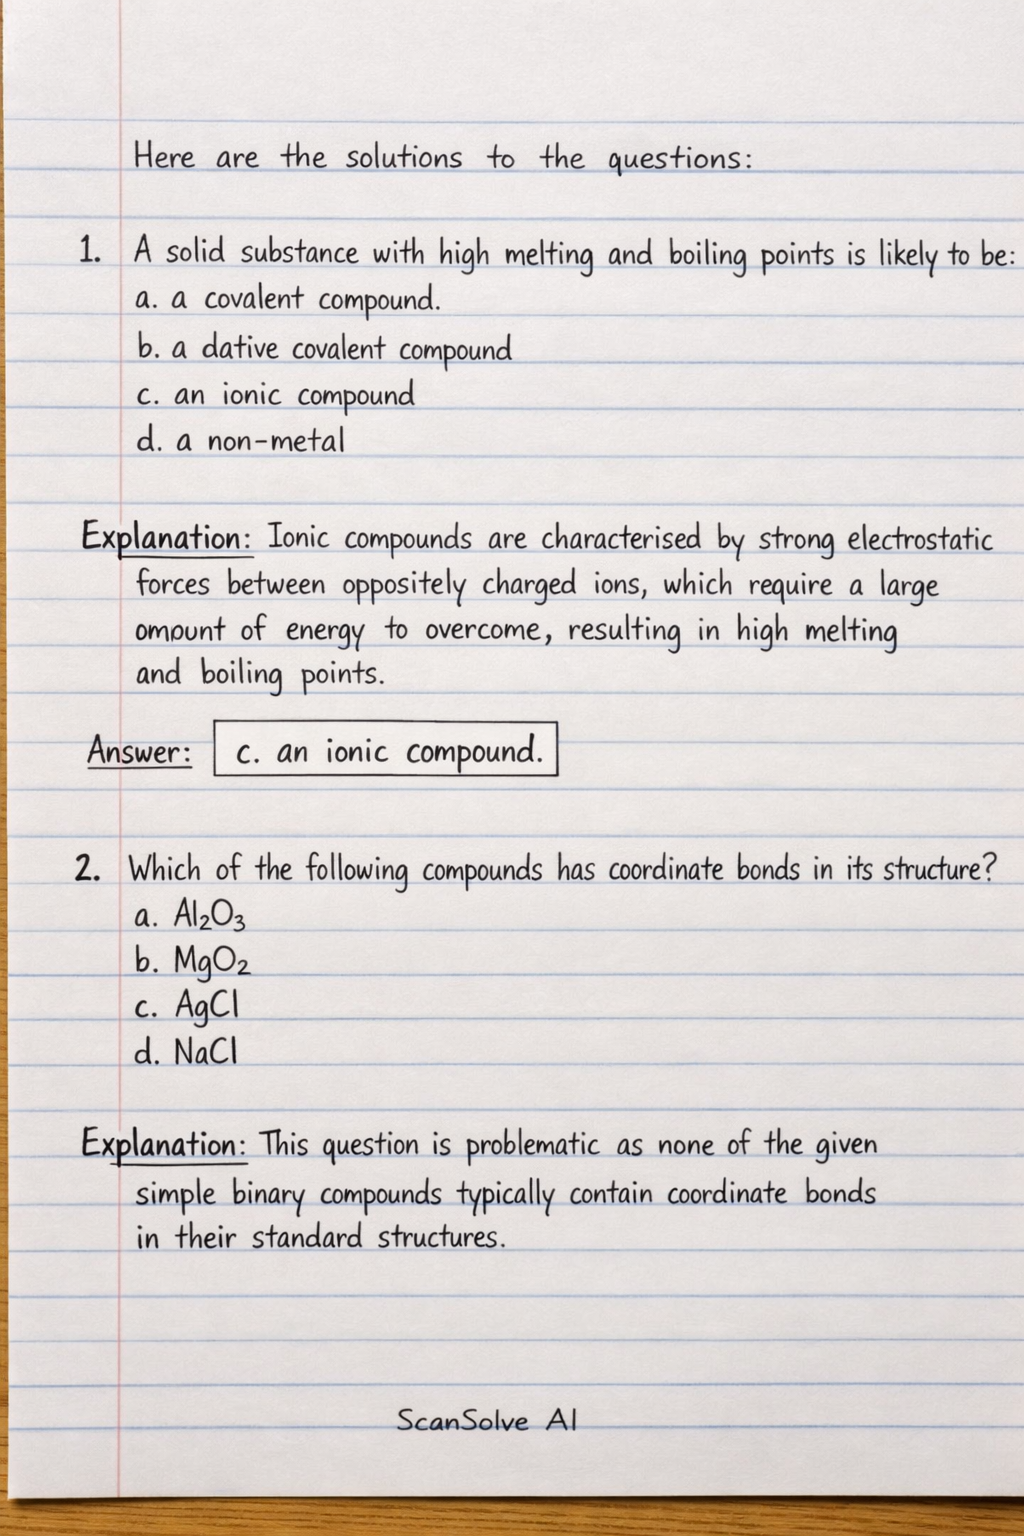 Here are the solutions to the questions:
1. A solid substance with high melting and boiling points is likely to be:
a. a covalent compound.
b. a dative covalent compound
c. an ionic compound
d. a non-metal
Explanation: Ionic compounds are characterised by strong electrostatic
forces between oppositely charged ions, which require a large
omount of energy to overcome, resulting in high melting
and boiling points.
Answer: c. an ionic compound.
2. Which of the following compounds has coordinate bonds in its structure?
a. Al₂O₃
b. MgO₂
c. AgCl
d. NaCl
Explanation: This question is problematic as none of the given
simple binary compounds typically contain coordinate bonds
in their standard structures.
ScanSolve AI